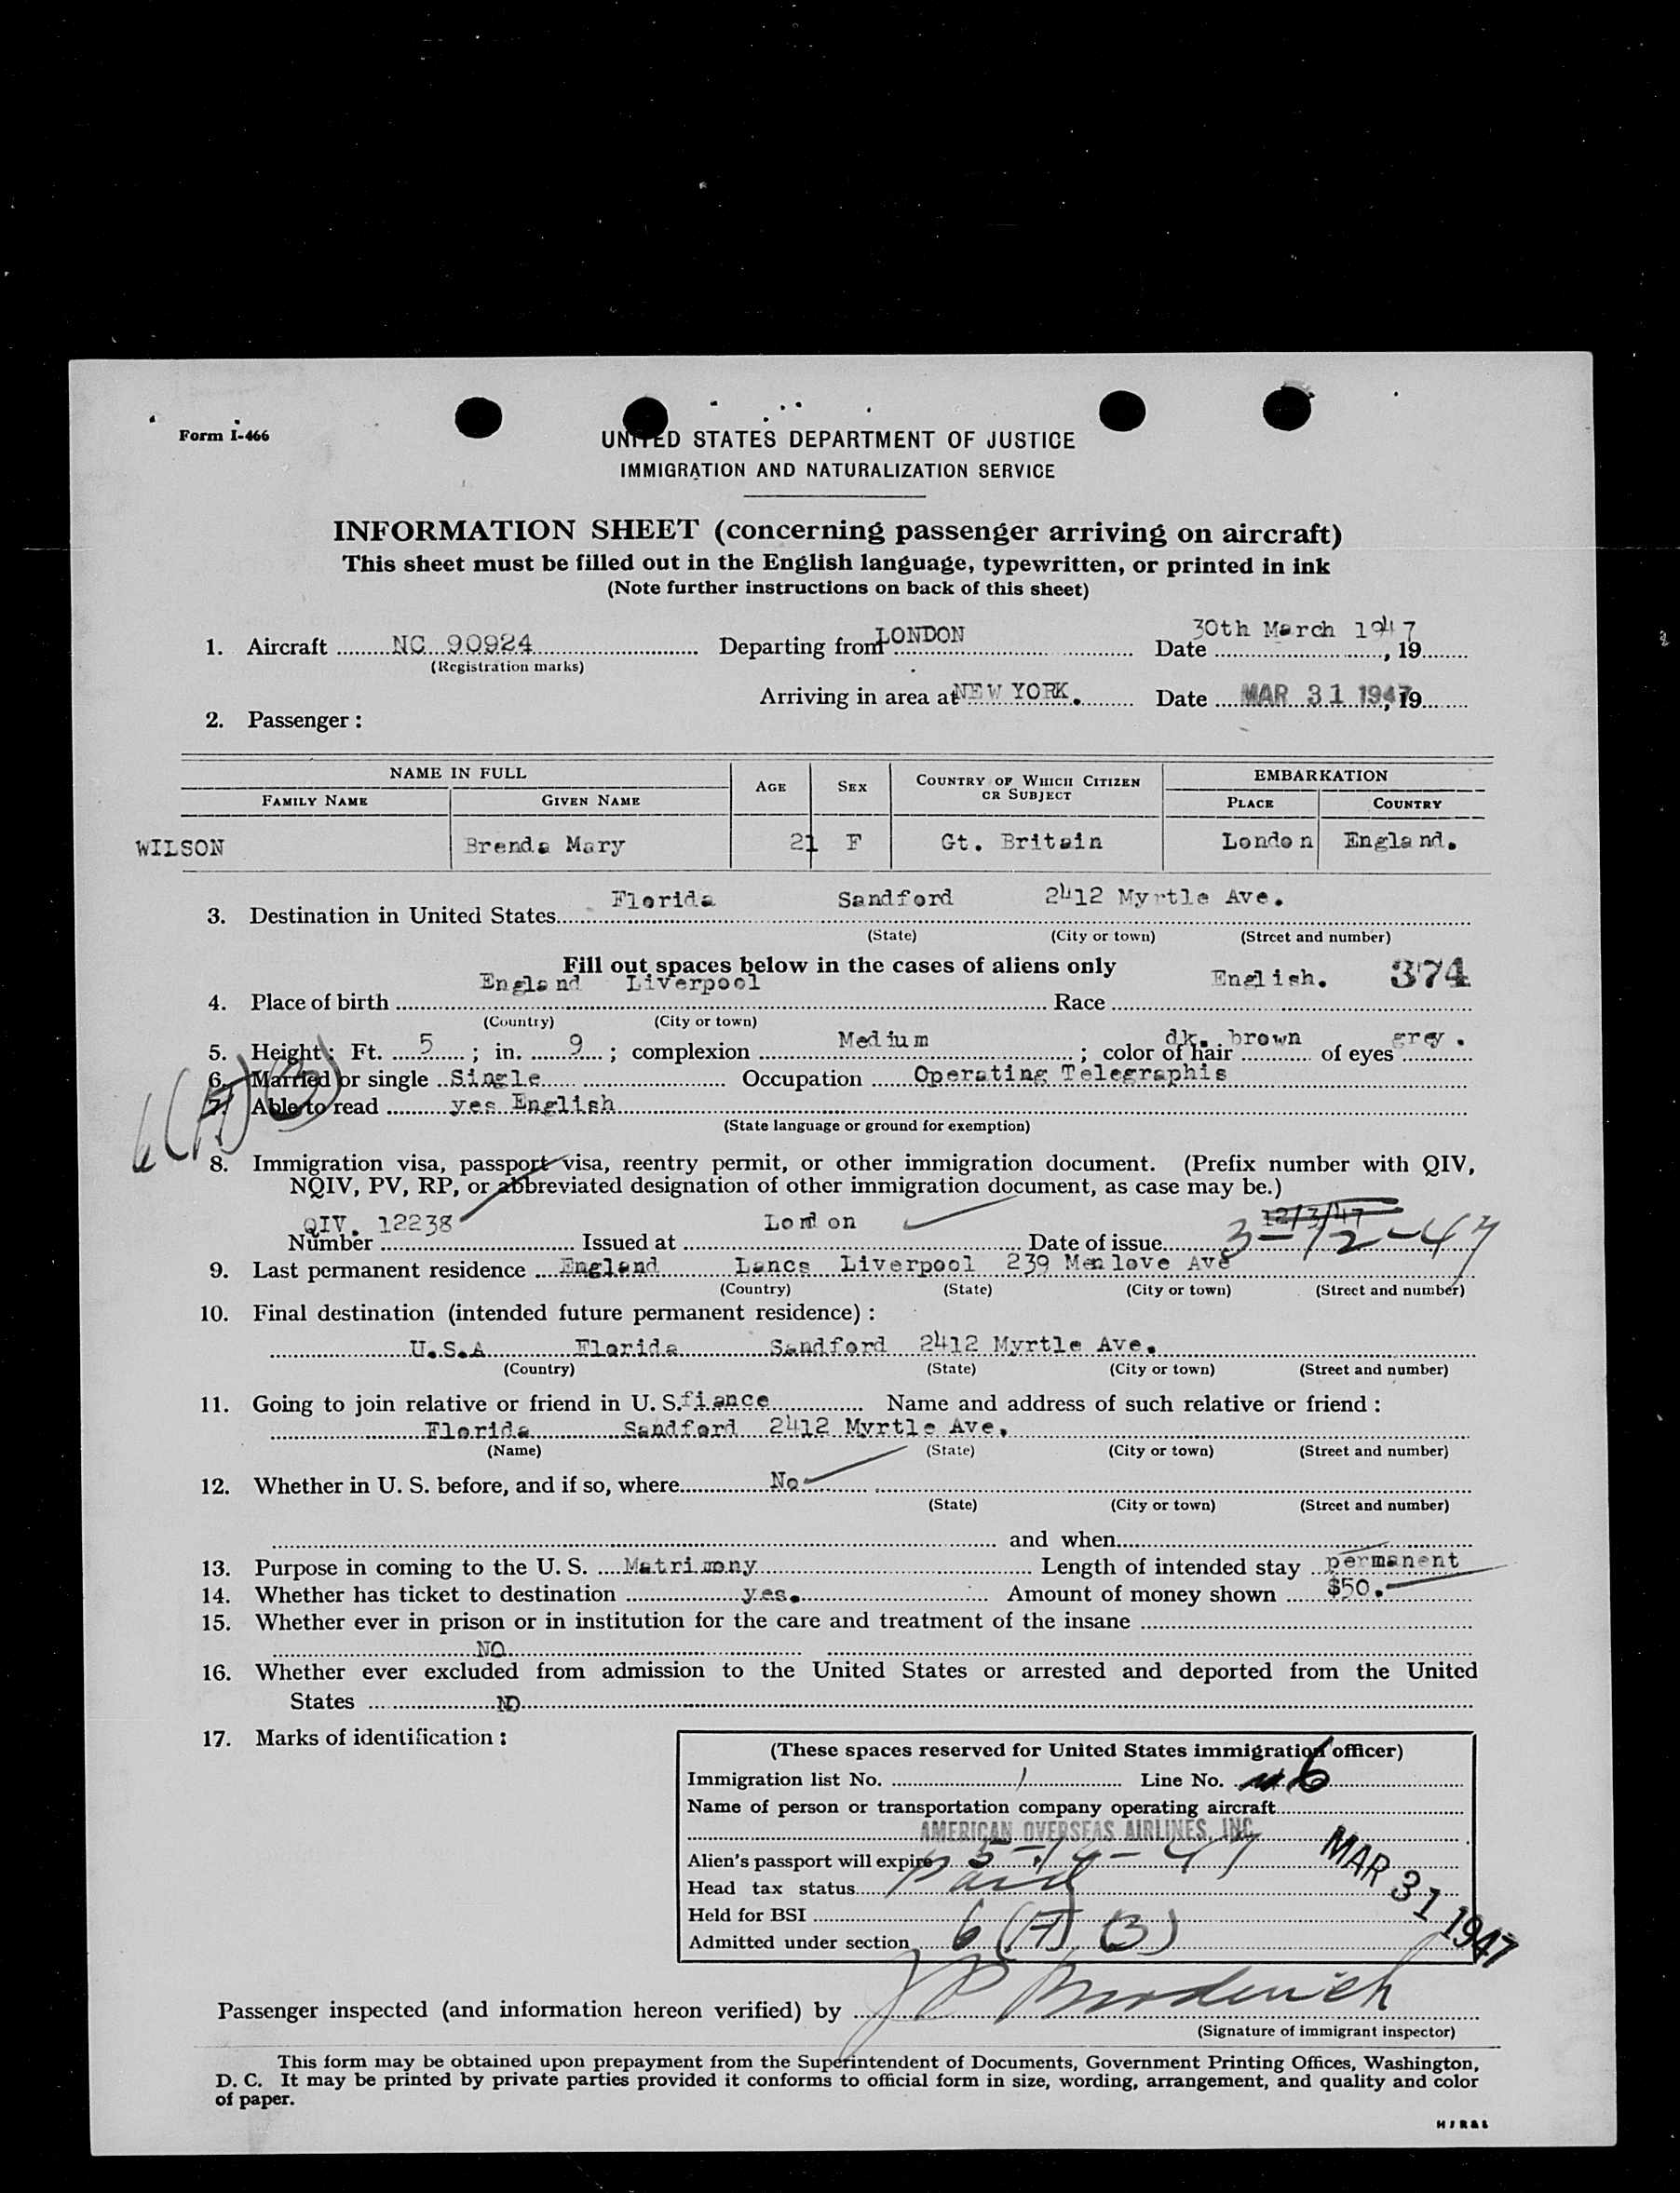 Form I-466
UNITED STATES DEPARTMENT OF JUSTICE
IMMIGRATION AND NATURALIZATION SERVICE
INFORMATION SHEET (concerning passenger arriving on aircraft)
This sheet must be filled out in the English language, typewritten, or printed in ink
(Note further instructions on back of this sheet)
1. Aircraft NC 90924 Departing from LONDON Date 30th March 1947, 19
(Registration marks)
Arriving in area at NEW YORK. Date MAR 31 1947, 19
2. Passenger:
NAME IN FULL AGE SEX COUNTRY OF WHICH CITIZEN OR SUBJECT EMBARKATION
FAMILY NAME GIVEN NAME PLACE COUNTRY
WILSON Brenda Mary 21 F Gt. Britain London England.
3. Destination in United States Florida Sandford 2412 Myrtle Ave.
(State) (City or town) (Street and number)
Fill out spaces below in the cases of aliens only
4. Place of birth England Liverpool Race English. 374
(Country) (City or town)
5. Height: Ft. 5; in. 9; complexion Medium; color of hair dk. brown of eyes grey.
6. Married or single Single Occupation Operating Telegraphis
7. Able to read yes English
(State language or ground for exemption)
6(A)(3)
8. Immigration visa, passport visa, reentry permit, or other immigration document. (Prefix number with QIV,
NQIV, PV, RP, or abbreviated designation of other immigration document, as case may be.)
Number QIV. 12238 Issued at London Date of issue 12/3/47 3-12-47
9. Last permanent residence England Lancs Liverpool 239 Menlove Ave
(Country) (State) (City or town) (Street and number)
10. Final destination (intended future permanent residence):
U.S.A Florida Sandford 2412 Myrtle Ave.
(Country) (State) (City or town) (Street and number)
11. Going to join relative or friend in U. S. fiance Name and address of such relative or friend:
Florida Sandford 2412 Myrtle Ave.
(Name) (State) (City or town) (Street and number)
12. Whether in U. S. before, and if so, where No
(State) (City or town) (Street and number)
and when
13. Purpose in coming to the U. S. Matrimony Length of intended stay permanent
14. Whether has ticket to destination yes. Amount of money shown $50.
15. Whether ever in prison or in institution for the care and treatment of the insane
NO
16. Whether ever excluded from admission to the United States or arrested and deported from the United
States NO
17. Marks of identification:
(These spaces reserved for United States immigration officer)
Immigration list No. 1 Line No. 6
Name of person or transportation company operating aircraft
AMERICAN OVERSEAS AIRLINES, INC.
Alien's passport will expire 5-14-47
Head tax status Paid
Held for BSI
Admitted under section 6(A)(3)
MAR 31 1947
Passenger inspected (and information hereon verified) by
(Signature of immigrant inspector)
This form may be obtained upon prepayment from the Superintendent of Documents, Government Printing Offices, Washington,
D. C. It may be printed by private parties provided it conforms to official form in size, wording, arrangement, and quality and color
of paper.